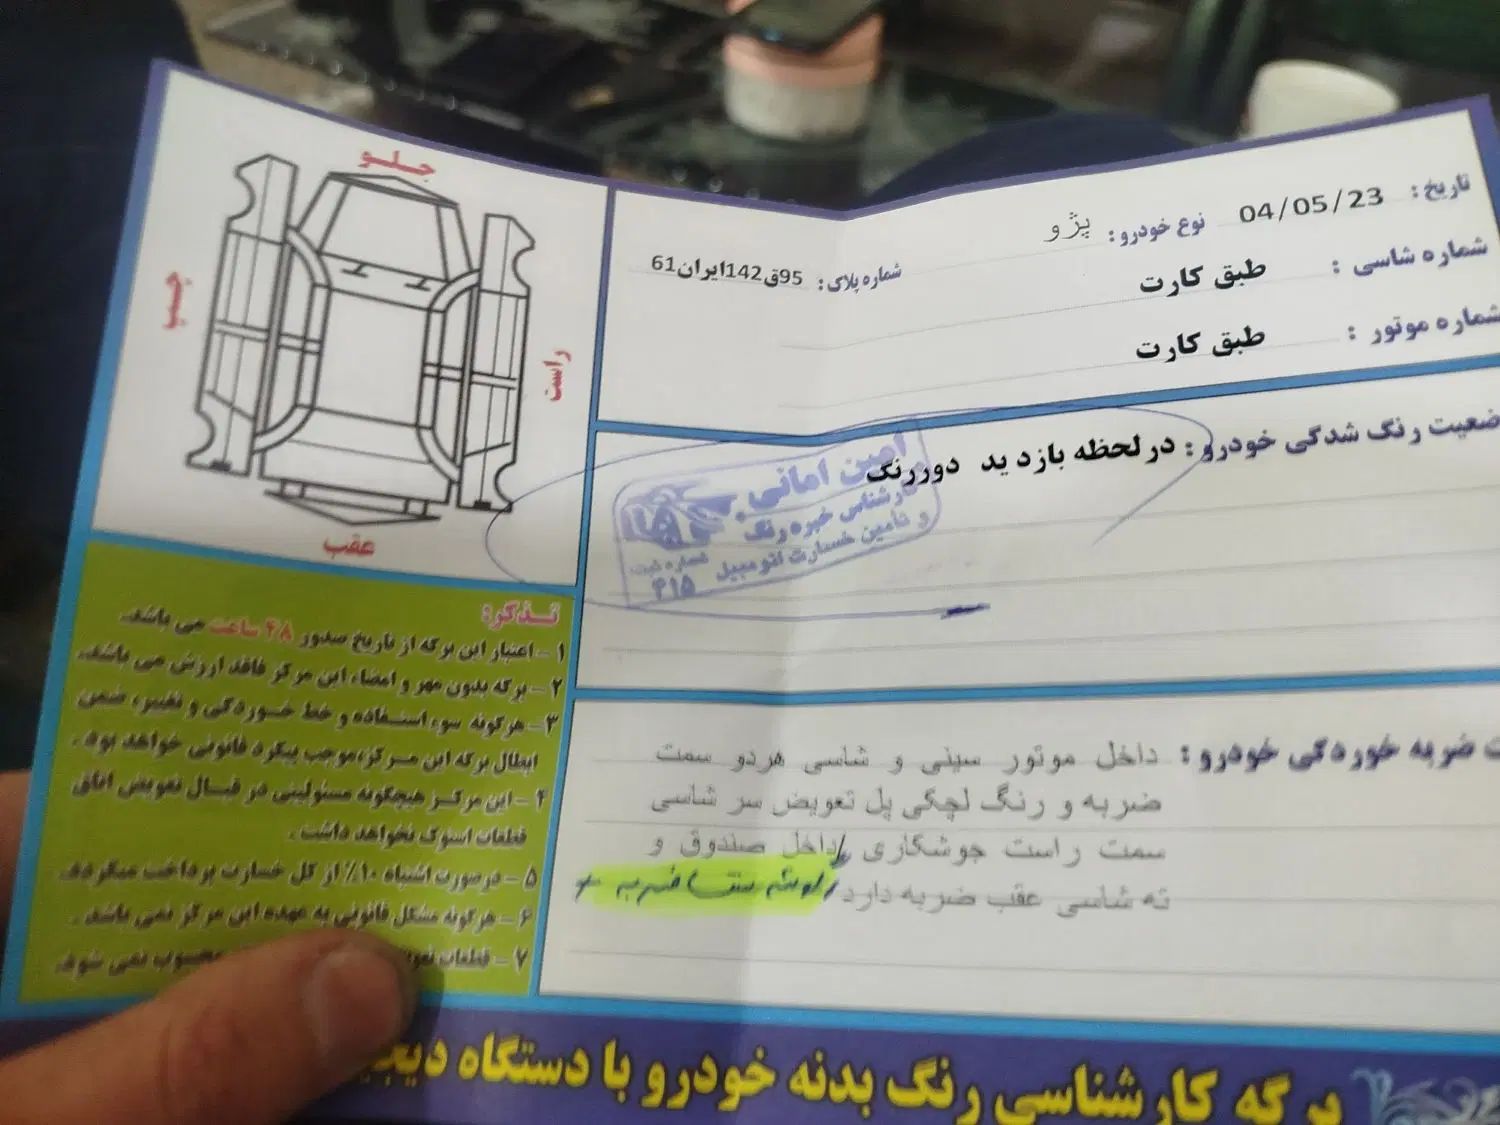 تاریخ : 04/05/23
نوع خودرو : پژو
شماره پلاک : 95ق142ایران61
شماره شاسی : طبق کارت
شماره موتور : طبق کارت
جلو
چپ
راست
عقب
ضعیت رنگ شدگی خودرو : درلحظه بازدید دوررنگ
امین امانی
کارشناس خبره رنگ
و تامین خسارت اتومبیل
شماره ثبت
۳۱۵
ت ضربه خوردگی خودرو : داخل موتور سینی و شاسی هردو سمت
ضربه و رنگ لچکی پل تعویض سر شاسی
سمت راست جوشکاری داخل صندوق و
ته شاسی عقب ضربه دارد
تذکر:
۱- اعتبار این برگه از تاریخ صدور ۴۸ ساعت می باشد.
۲- برگه بدون مهر و امضاء این مرکز فاقد ارزش می باشد.
۳- هرگونه سوء استفاده و خط خوردگی و تغییر، ضمن
ابطال برگه این مرکز،موجب پیگرد قانونی خواهد بود.
۴- این مرکز هیچگونه مسئولیتی در قبال تعویض اتاق
قطعات استوک نخواهد داشت.
۵- درصورت اشتباه ۱۰٪ از کل خسارت پرداخت میگردد.
۶- هرگونه مشکل قانونی به عهده این مرکز نمی باشد.
۷- قطعات محسوب نمی شود.
برگه کارشناسی رنگ بدنه خودرو با دستگاه